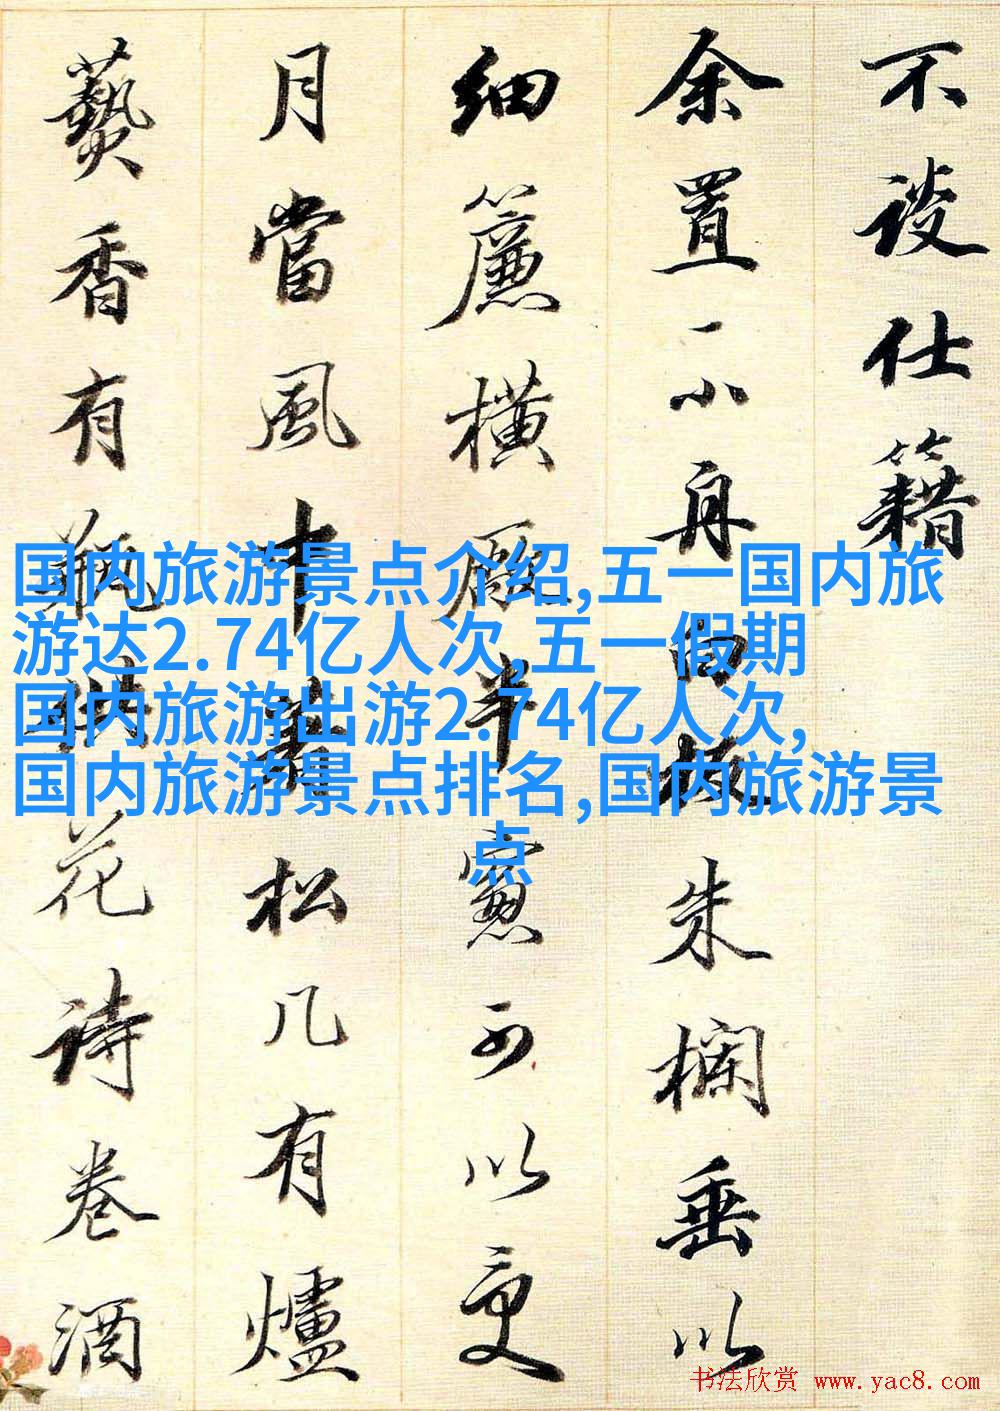 不談仕籍
余置一小舟白板朱欄垂以
細簾橫廠半窻可以受
月當風中松几有爐
爇香有瓶供花詩卷酒
国内旅游景点介绍,五一国内旅
游达2.74亿人次,五一假期
国内旅游出游2.74亿人次,
国内旅游景点排名,国内旅游景
点
书法欣赏 www.yac8.com